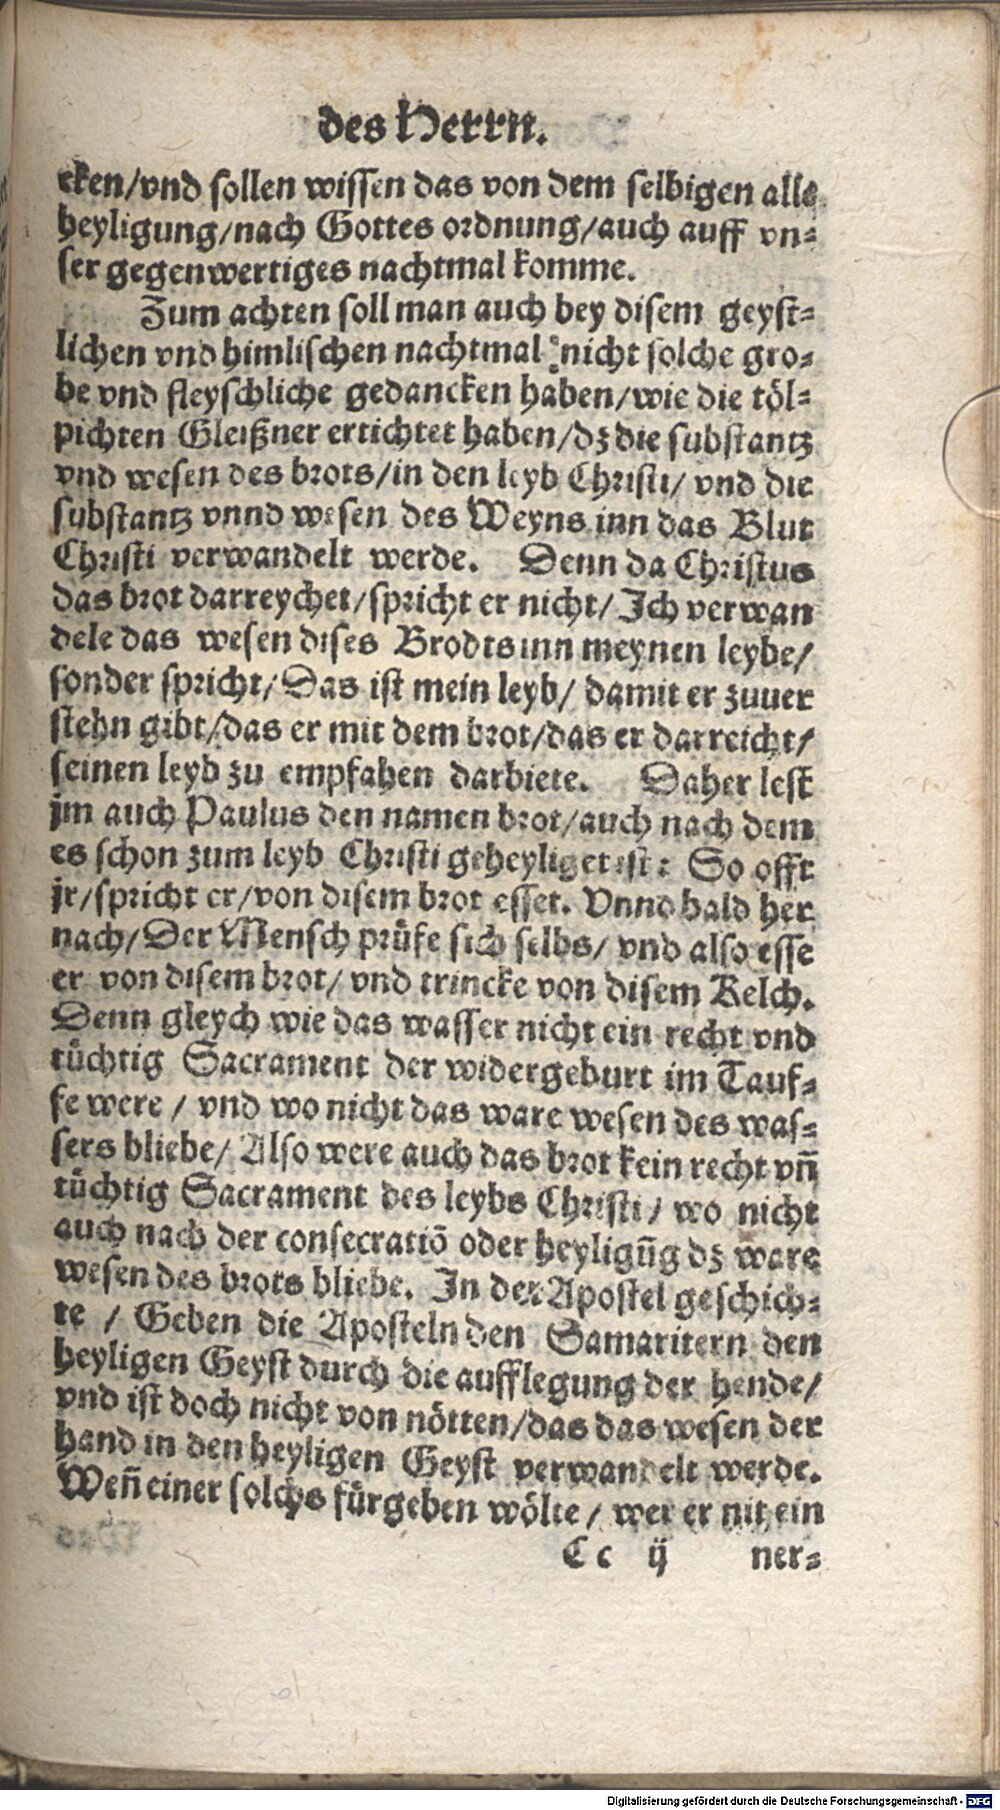 des Herrn.
cken/vnd sollen wissen das von dem selbigen alle
heyligung/nach Gottes ordnung/auch auff vn⸗
ser gegenwertiges nachtmal komme.
Zum achten soll man auch bey disem geyst⸗
lichen vnd himlischen nachtmal nicht solche gro⸗
be vnd fleyschliche gedancken haben/wie die töl⸗
pichten Gleißner ertichtet haben/dz die substantz
vnd wesen des brots/in den leyb Christi/ vnd die
substantz vnnd wesen des Weyns inn das Blut
Christi verwandelt werde. Denn da Christus
das brot darreychet/spricht er nicht/ Ich verwan
dele das wesen dises Brodts inn meynen leybe/
sonder spricht/ Das ist mein leyb/ damit er zuuer
stehn gibt/das er mit dem brot/das er darreicht/
seinen leyb zu empfahen darbiete. Daher lest
jm auch Paulus den namen brot/auch nach dem
es schon zum leyb Christi geheyliget ist: So offt
jr/spricht er/von disem brot esset. Vnnd bald her
nach/Der Mensch prüfe sich selbs/ vnd also esse
er von disem brot/ vnd trincke von disem Kelch.
Denn gleych wie das wasser nicht ein recht vnd
tüchtig Sacrament der widergeburt im Tauf⸗
fe were / vnd wo nicht das ware wesen des was⸗
sers bliebe/ Also were auch das brot kein recht vñ
tüchtig Sacrament des leybs Christi/ wo nicht
auch nach der consecratiō oder heyligũg dz ware
wesen des brots bliebe. In der Apostel geschich⸗
te / Geben die Aposteln den Samaritern den
heyligen Geyst durch die aufflegung der hende/
vnd ist doch nicht von nötten/das das wesen der
hand in den heyligen Geyst verwandelt werde.
Weñ einer solchs fürgeben wölte / wer er nit ein
Cc ij ner⸗
Digitalisierung gefördert durch die Deutsche Forschungsgemeinschaft - DFG